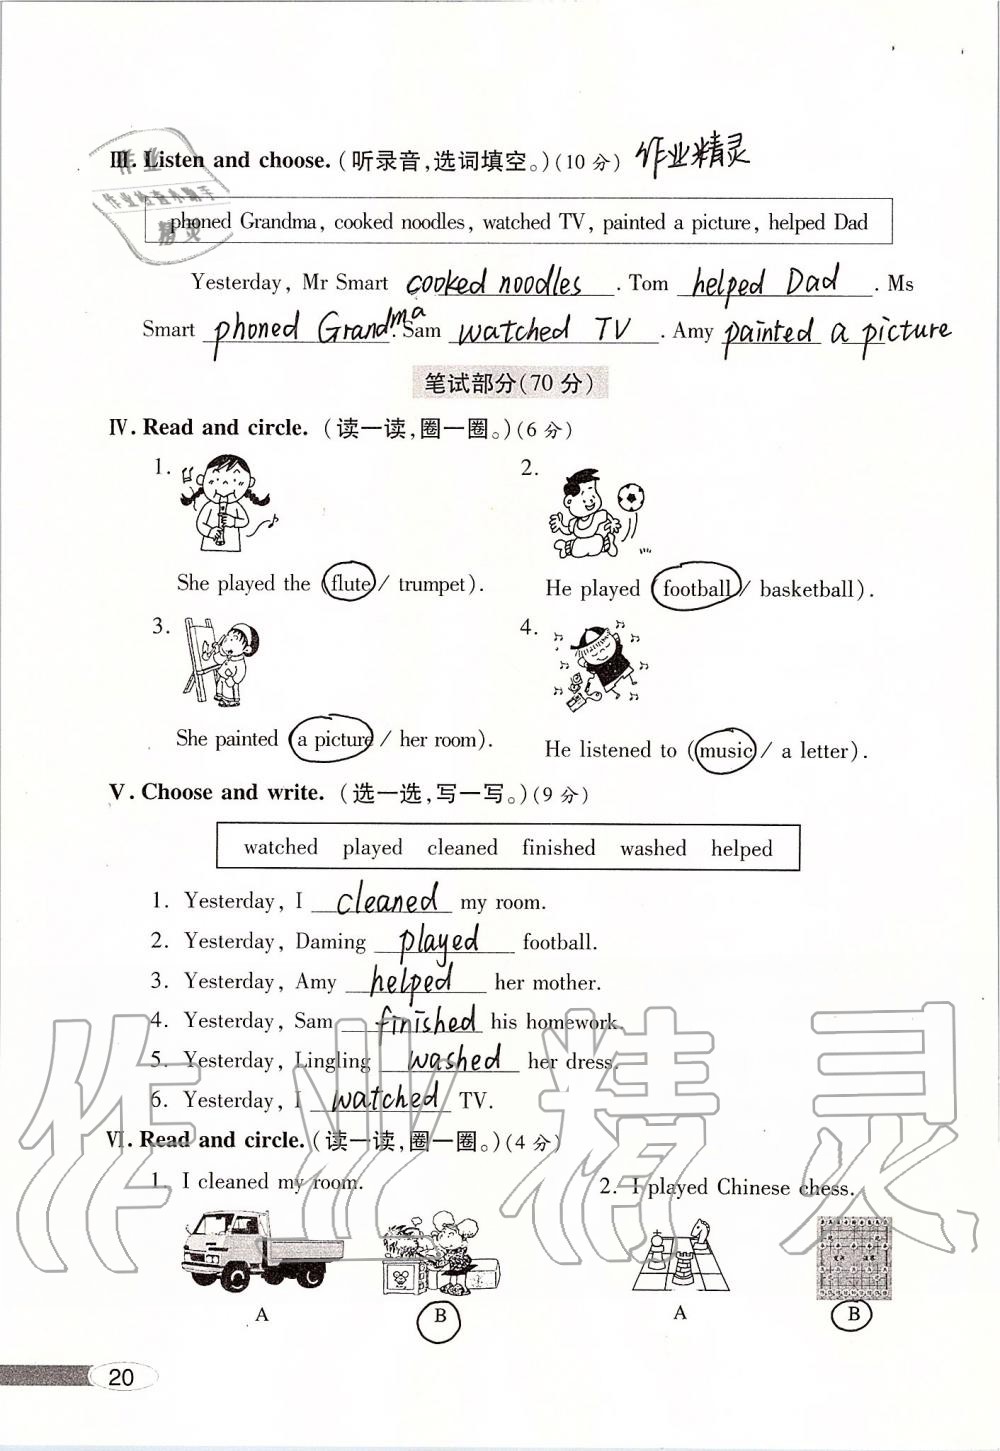 Ⅲ. Listen and choose. (听录音,选词填空。)(10 分) 作业精灵
作业
作业检查小助手
精灵
phoned Grandma, cooked noodles, watched TV, painted a picture, helped Dad
Yesterday, Mr Smart cooked noodles. Tom helped Dad. Ms
Smart phoned Grandma. Sam watched TV. Amy painted a picture
笔试部分(70 分)
Ⅳ. Read and circle. (读一读,圈一圈。)(6 分)
1.
2.
She played the (flute / trumpet).
He played (football / basketball).
3.
4.
She painted (a picture / her room).
He listened to (music / a letter).
Ⅴ. Choose and write. (选一选,写一写。)(9 分)
watched played cleaned finished washed helped
1. Yesterday, I cleaned my room.
2. Yesterday, Daming played football.
3. Yesterday, Amy helped her mother.
4. Yesterday, Sam finished his homework.
5. Yesterday, Lingling washed her dress.
6. Yesterday, I watched TV.
作业精灵
Ⅵ. Read and circle. (读一读,圈一圈。)(4 分)
1. I cleaned my room.
2. I played Chinese chess.
A
B
A
B
20